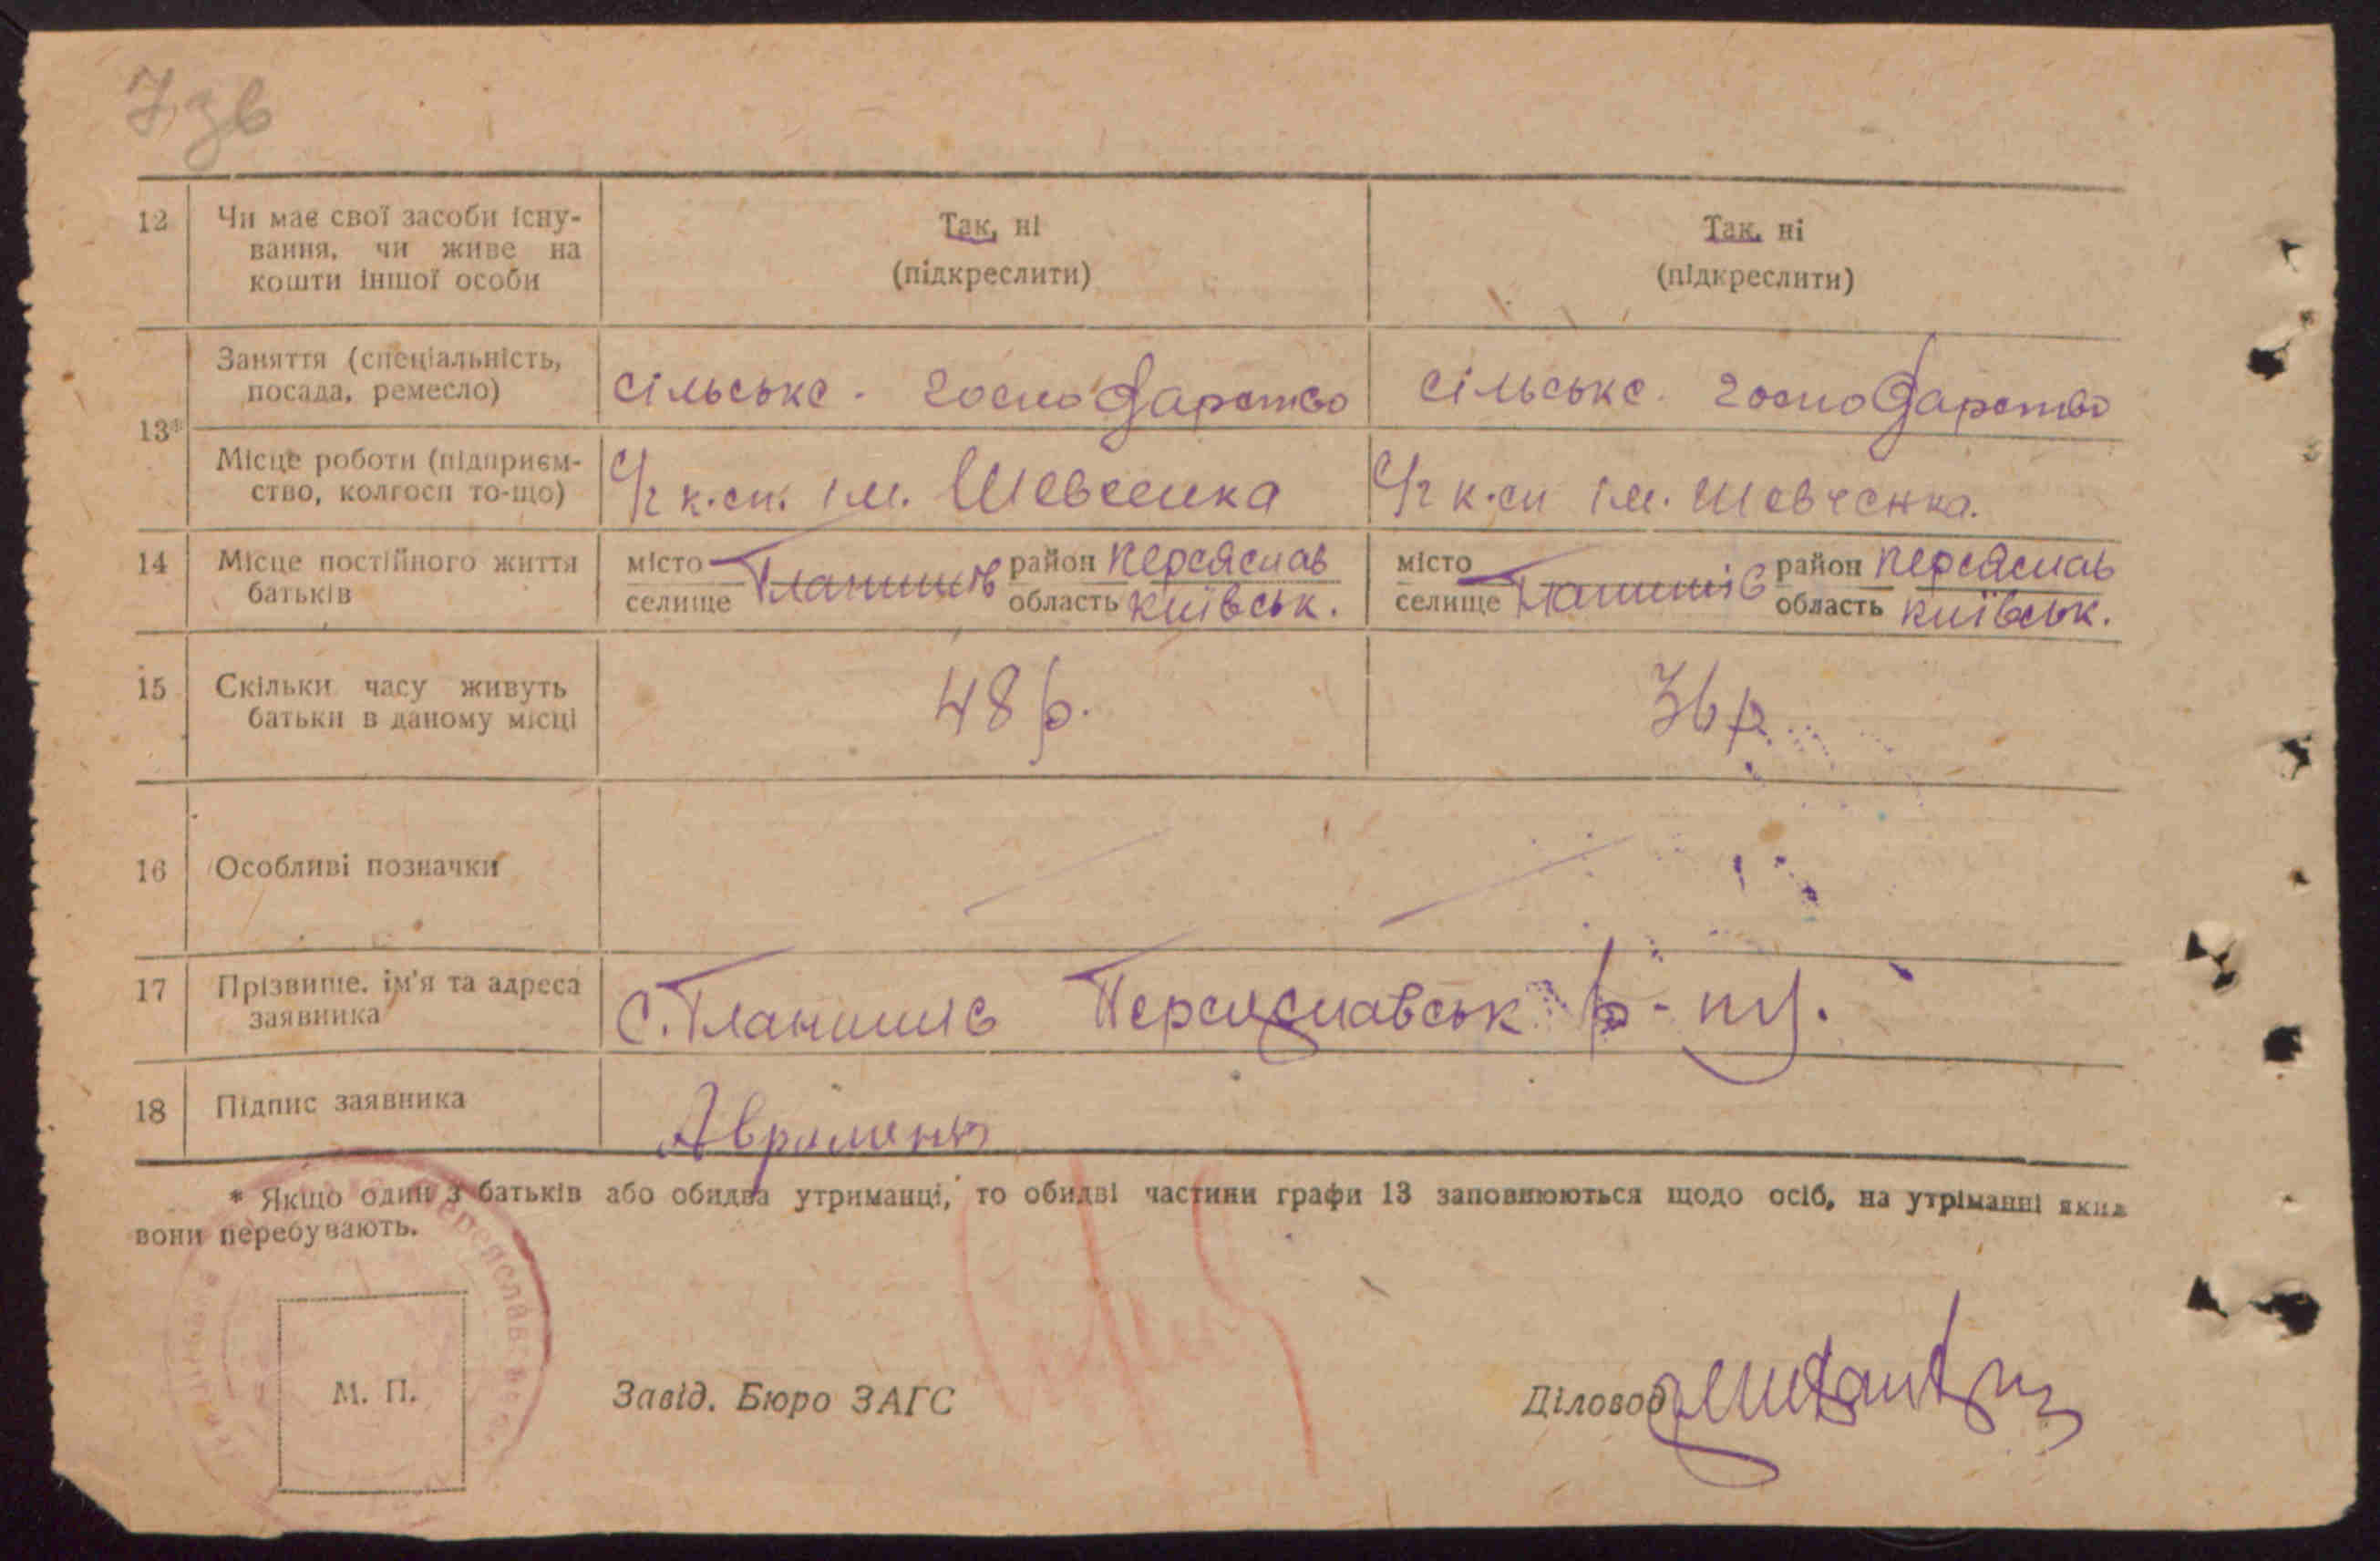 7 зв
12 Чи має свої засоби існу-
вання, чи живе на
кошти іншої особи
Так, ні
(підкреслити)
Так, ні
(підкреслити)
13*
Заняття (спеціальність,
посада, ремесло)
сільське - господарство
сільське. господарство
Місце роботи (підприєм-
ство, колгосп то-що)
С/г к.сп. ім. Шевченка
С/г к.сп ім. Шевченка.
14 Місце постійного життя
батьків
місто
селище
район Переяслав
область Київськ.
місто
селище
район Переяслав
область Київськ.
15 Скільки часу живуть
батьки в даному місці
48 р.
36 р.
16 Особливі позначки
17 Прізвище, ім'я та адреса
заявника
с. Переяславськ р-ну.
18 Підпис заявника
* Якщо один з батьків або обидва утриманці, то обидві частини графи 13 заповнюються щодо осіб, на утріманні яких
вони перебувають.
М. П.
Завід. Бюро ЗАГС
Діловод